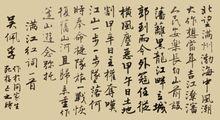 北望满州渤海中风潮
大作想当年吉江辽沈
人民安乐长白山前设
藩篱黑龙江畔列城
郭到而今外寇任纵
横风尘恶甲午役土地
割甲辰年主权
江山一步一步落何
时奉命提战
复旧山河且归来重作
蓬山游念弥陀
满江红词一首
吴佩孚